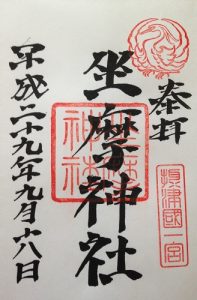 奉拝
摂津國一宮
坐摩神社
平成二十九年九月十八日